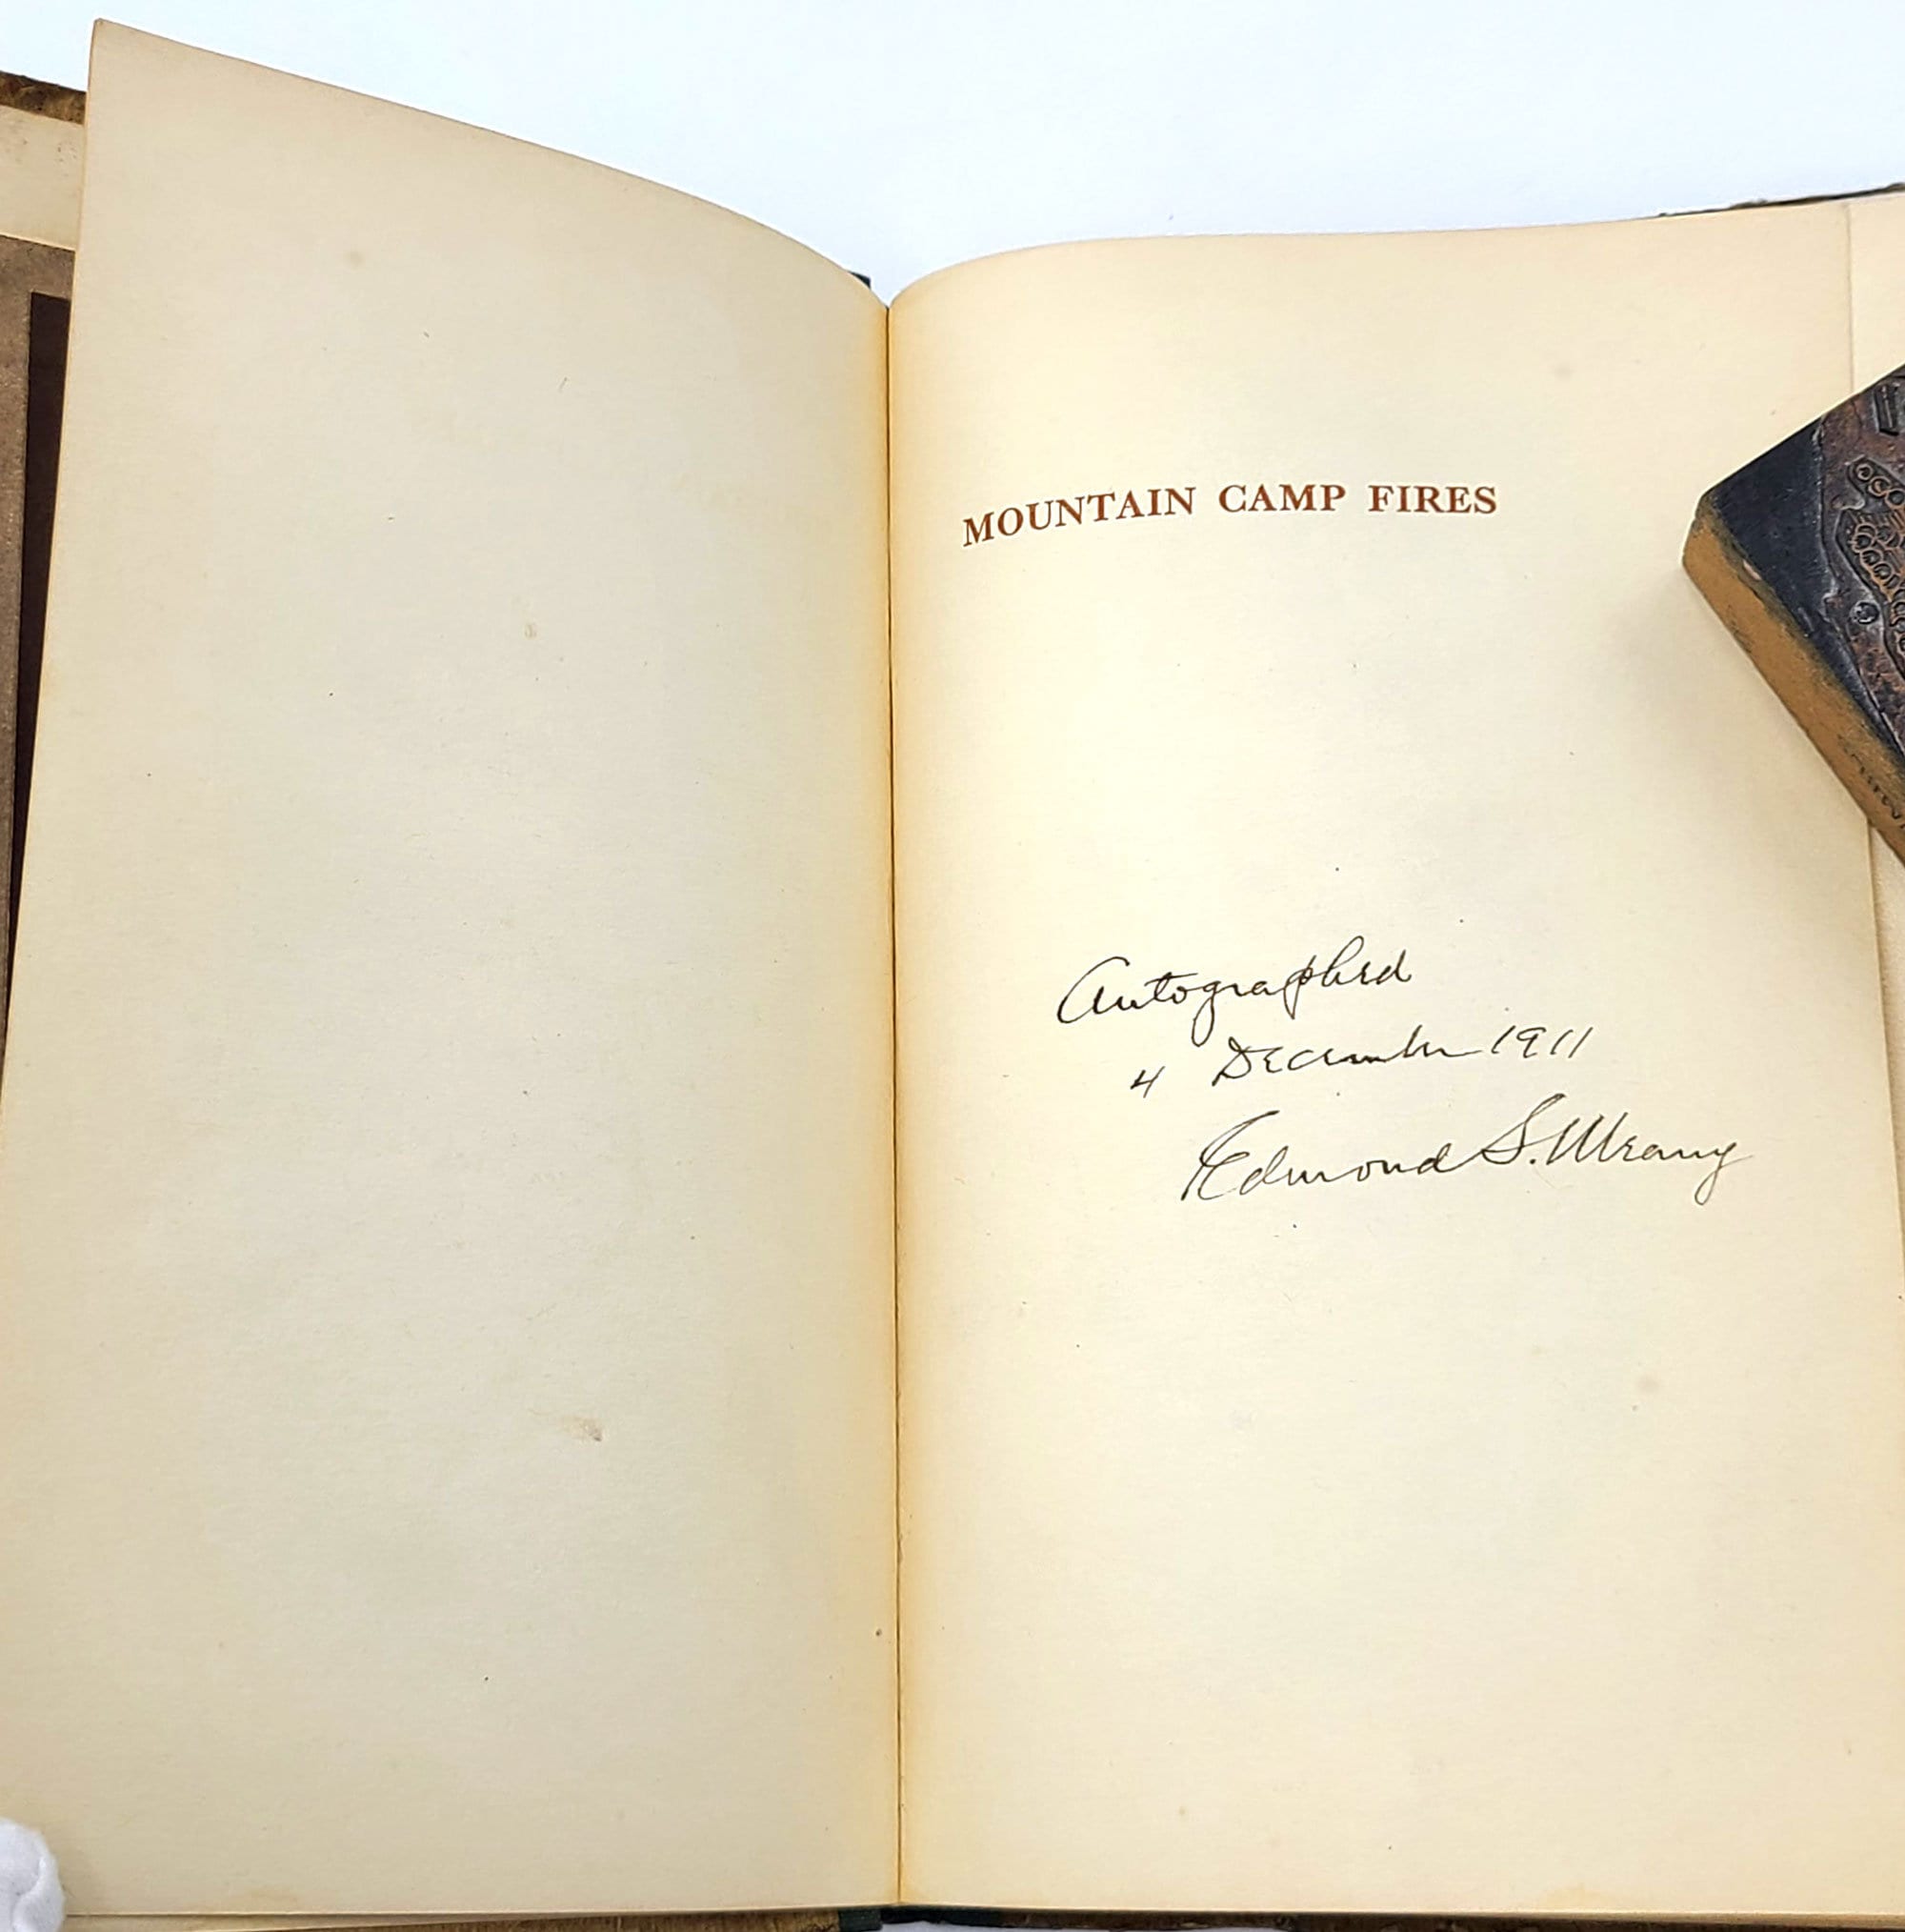 MOUNTAIN CAMP FIRES
Autographed
4 December 1911
Edmond S. Meany